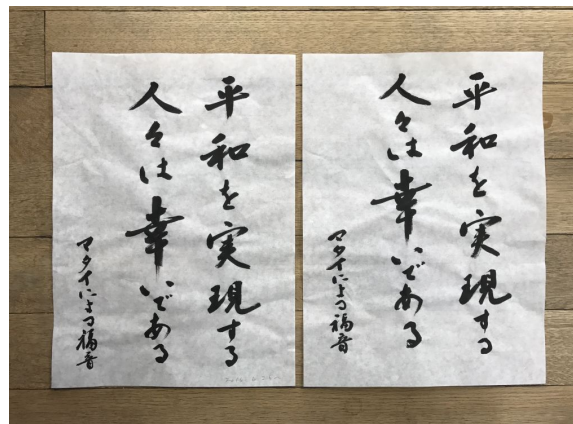 平和を実現する
人々は幸いである
マタイによる福音
平和を実現する
人々は幸いである
マタイによる福音